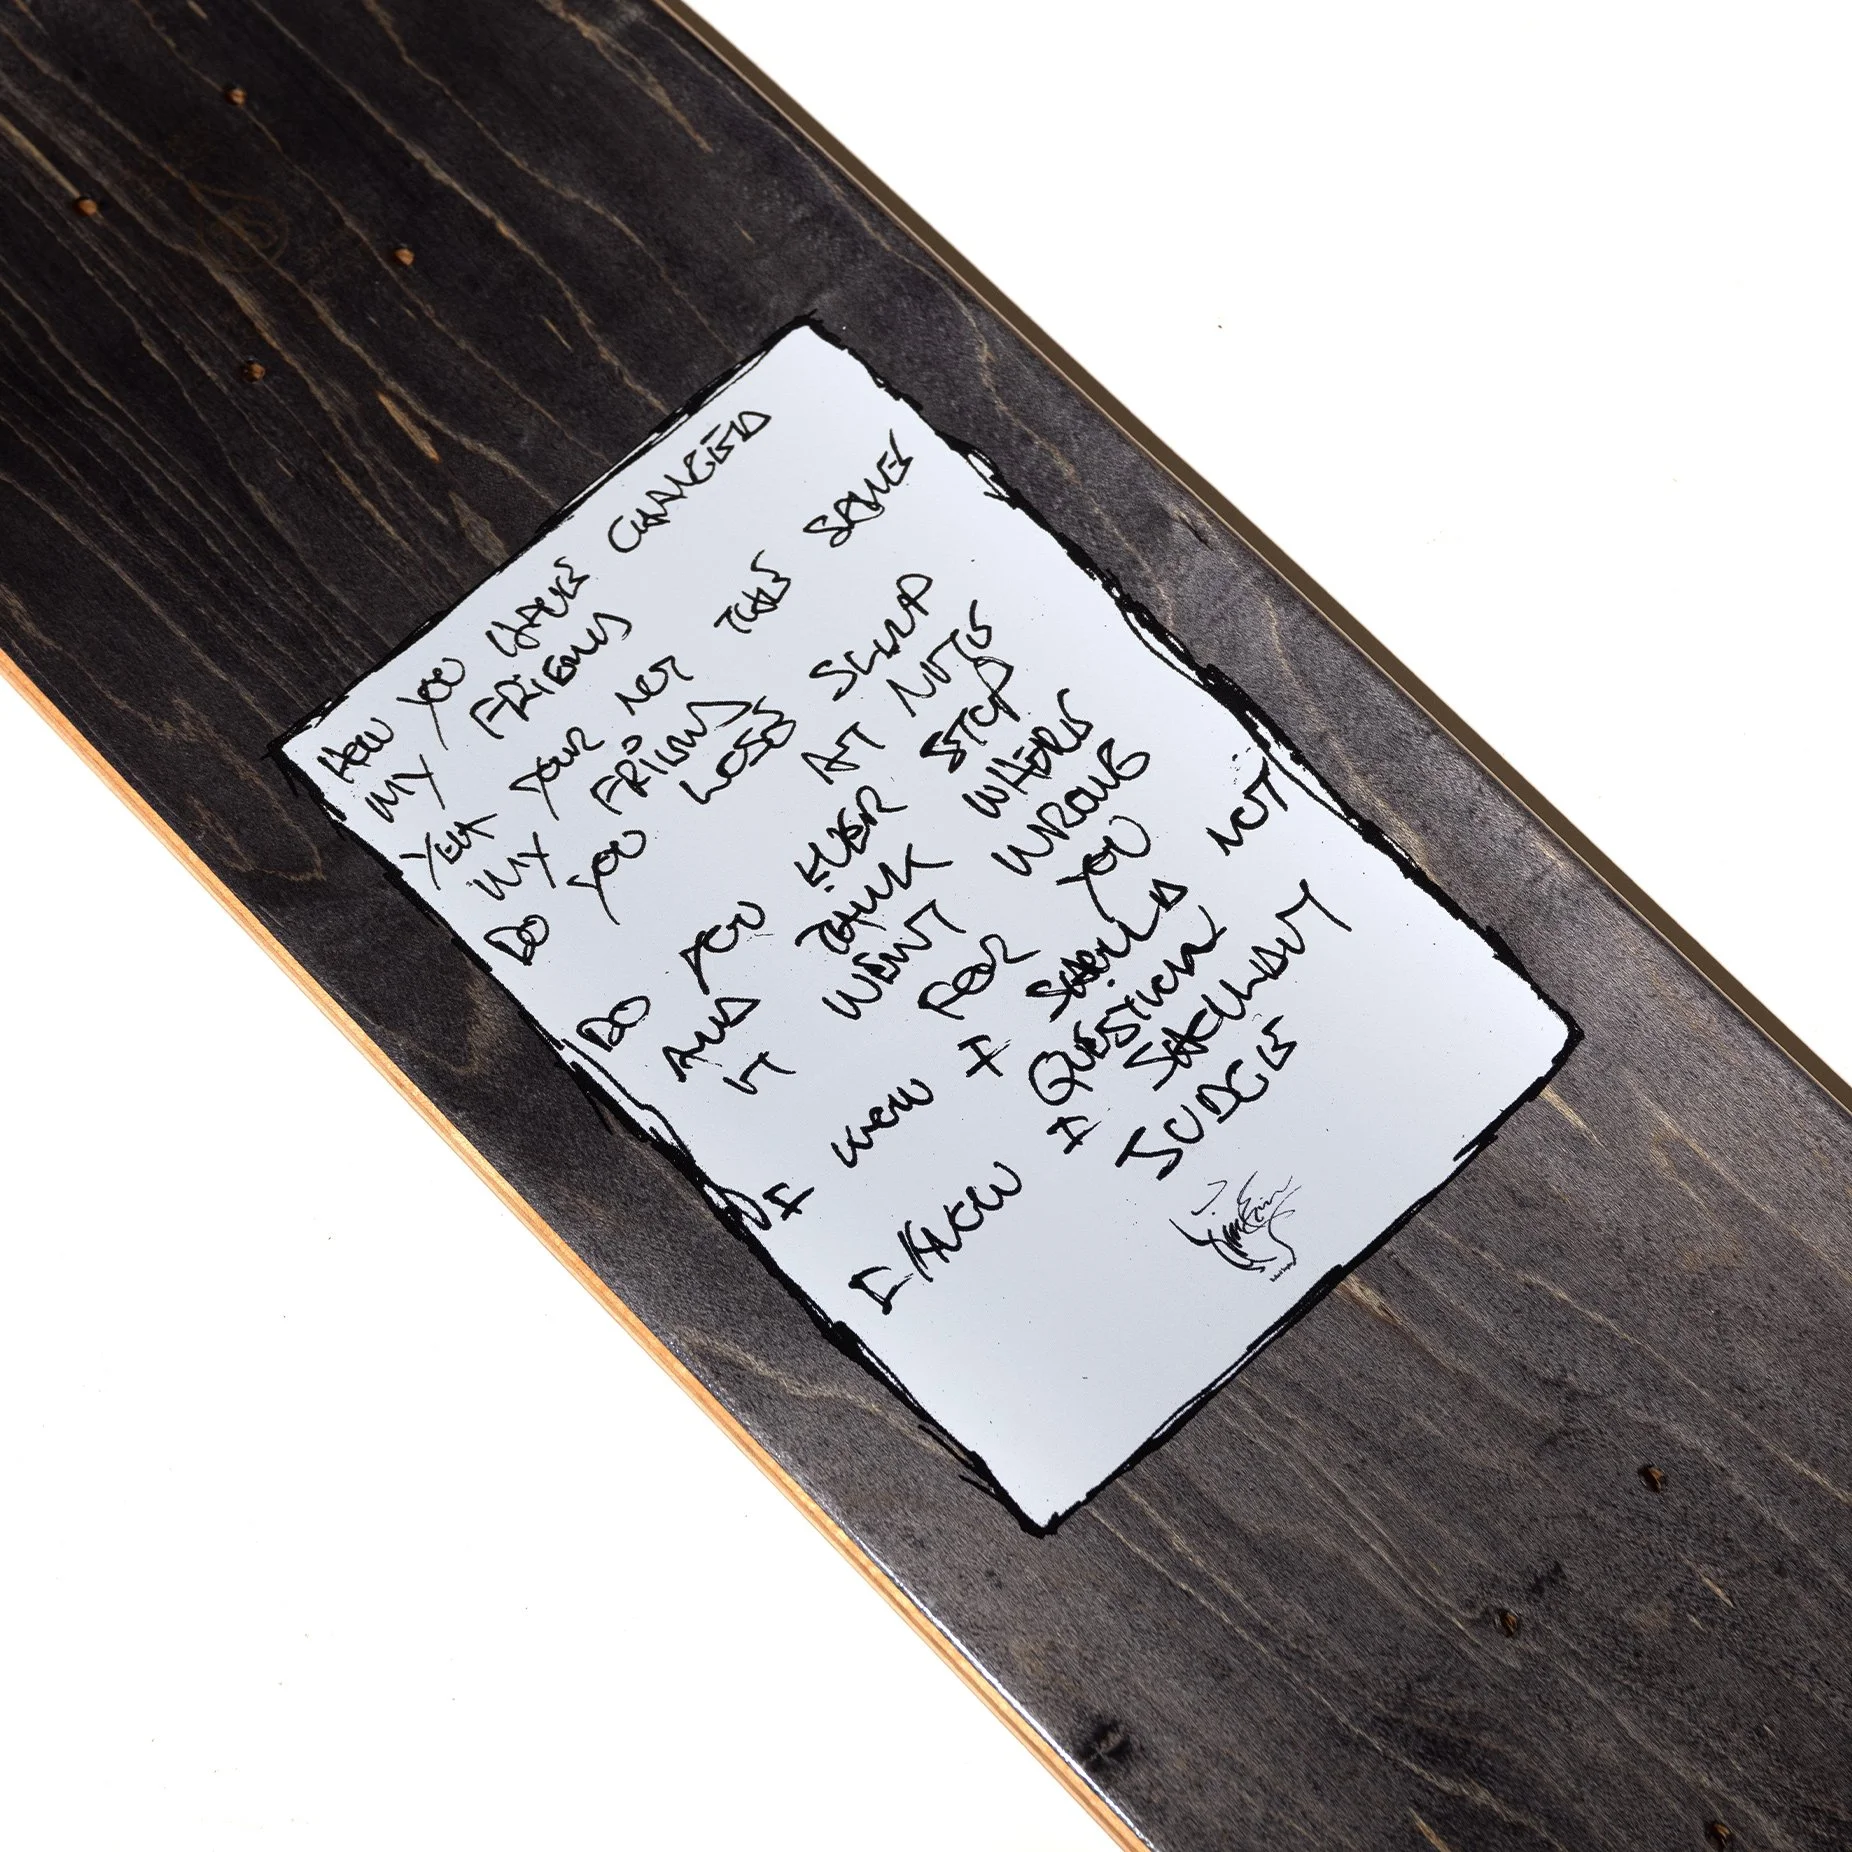 HOW YOU HAVE CHANGED
MY FRIEND
YEA YOUR NOT THE SAME
MY FRIEND
DO YOU LOSE SLEEP
AT NITE
DO YOU EVER STOP
AND THINK WHERE
IT WENT WRONG
FOR YOU
I KNOW I SHOULD NOT
QUESTION
I KNOW I SHOULDNT
JUDGE